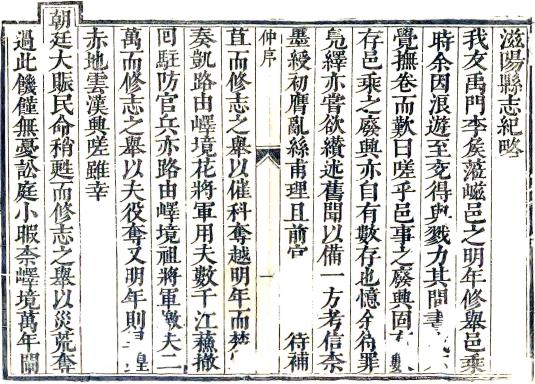 滋陽縣志紀略
我友禹門李矦蒞嵫邑之明年修舉邑乘
時余因浪遊至兖得與戮力其間書
覺撫卷而歎曰嗟乎邑事之廢興固有數
存邑乘之廢興亦自有數存也憶余待罪
鳧繹亦嘗欲纘述舊聞以備一方考信柰
墨綬初膺亂絲甫理且前官 待補
仲序 一
苴而修志之舉以催科奪越明年而楚
奏凱路由嶧境花將軍用夫數千江蘓撤
囘駐防官兵亦路由嶧境祖將軍數夫二
萬而修志之舉以夫役奪又明年則 皇
赤地雲漢興嗟雖幸
朝廷大賑民命稍甦而修志之舉以災荒奪
過此饑饉無憂訟庭小暇柰嶧境萬年閘